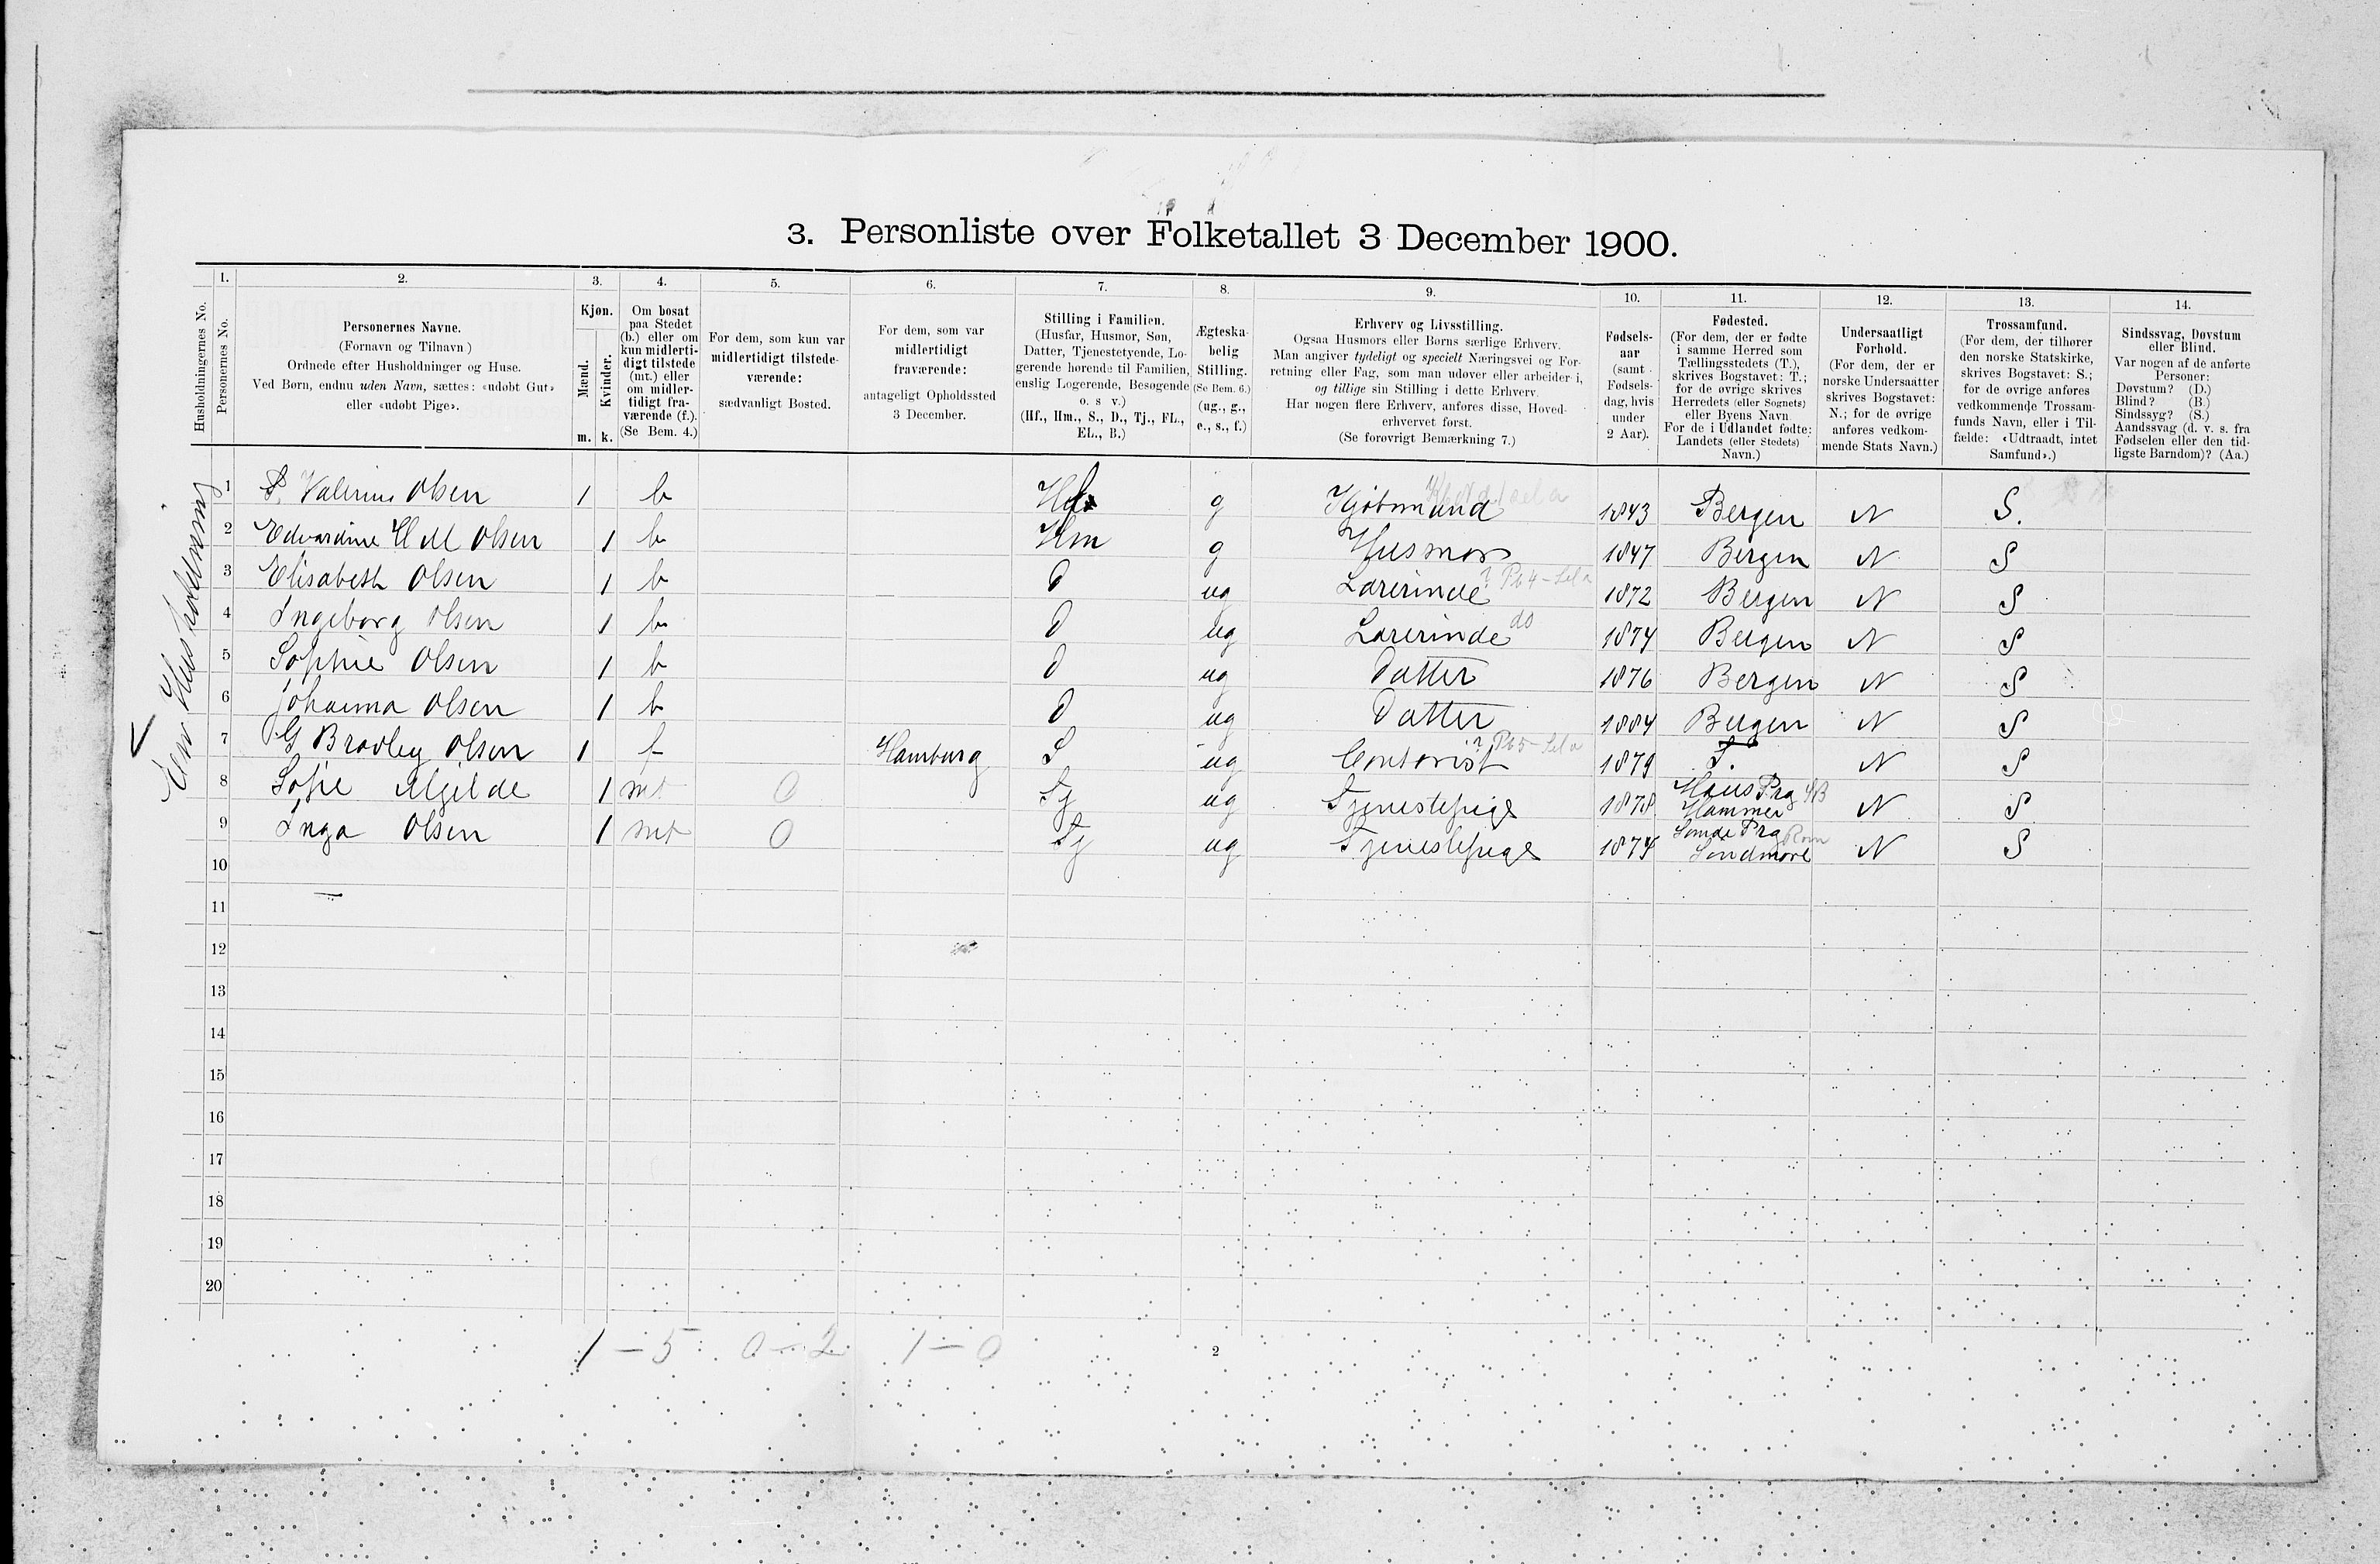 3. Personliste over Folketallet 3 December 1900.
Husholdningernes No.
1. Personernes No.
2. Personernes Navne.
(Fornavn og Tilnavn)
Ordnede efter Husholdninger og Huse.
Ved Børn, endnu uden Navn, sættes: «udøbt Gut»
eller «udøbt Pige».
3. Kjøn.
Mænd. Kvinder.
m. k.
4. Om bosat
paa Stedet
(b.) eller om
kun midlerti-
digt tilstede
(mt.) eller
om midler-
tidigt fra-
værende (f.).
(Se Bem. 4.)
5. For dem, som kun var
midlertidigt tilstede-
værende:
sædvanligt Bosted.
6. For dem, som var
midlertidigt
fraværende:
antageligt Opholdssted
3 December.
7. Stilling i Familien.
(Husfar, Husmor, Søn,
Datter, Tjenestetyende, Lo-
gerende hørende til Familien,
enslig Logerende, Besøgende
o. s v.)
(Hf., Hm., S., D., Tj., FL.,
EL., B.)
8. Ægteska-
belig
Stilling.
(Se Bem. 6.)
(ug., g.,
e., s., f.)
9. Erhverv og Livsstilling.
Ogsaa Husmors eller Børns særlige Erhverv.
Man angiver tydeligt og specielt Næringsvei og For-
retning eller Fag, som man udøver eller arbeider i,
og tillige sin Stilling i dette Erhverv.
Har nogen flere Erhverv, anføres disse, Hoved-
erhvervet først.
(Se forøvrigt Bemærkning 7.)
10. Fødsels-
aar
(samt
Fødsels-
dag, hvis
under
2 Aar).
11. Fødested.
(For dem, der er fødte
i samme Herred som
Tællingsstedets (T.),
skrives Bogstavet: T.;
for de øvrige skrives
Herredets (eller Sognets)
eller Byens Navn
For de i Udlandet fødte:
Landets (eller Stedets)
Navn.)
12. Undersaatligt
Forhold.
(For dem, der er
norske Undersaatter
skrives Bogstavet:
N.; for de øvrige
anføres vedkom-
mende Stats Navn.)
13. Trossamfund.
(For dem, der tilhører
den norske Statskirke,
skrives Bogstavet: S.;
for de øvrige anføres
vedkommende Trossam-
funds Navn, eller i Til-
fælde: «Udtraadt, intet
Samfund».)
14. Sindssvag, Døvstum
eller Blind.
Var nogen af de anførte
Personer:
Døvstum? (D.)
Blind? (B.)
Sindssyg? (S.)
Aandssvag (d. v. s. fra
Fødselen eller den tid-
ligste Barndom)? (Aa.)
Husholdning
1 Valerius Olsen 1 b g Kjøbmand 1843 Bergen N S.
2 Edvardine H M Olsen 1 b Hm g Husmor 1847 Bergen N S
3 Elisabeth Olsen 1 b D ug Lærerinde 1872 Bergen N S
4 Ingeborg Olsen 1 b D ug Lærerinde do 1874 Bergen N S
5 Sophie Olsen 1 b D ug Datter 1876 Bergen N S
6 Johanna Olsen 1 b D ug Datter 1884 Bergen N S
7 G Bradley Olsen 1 f Hamburg S ug Contorist 1879 N S
8 Sofie 1 mt 0 Tj ug Tjenestepige 1878 Haus Prg Hammer N S
9 Inga Olsen 1 mt 0 Tj ug Tjenestepige 1874 Prg Søndmøre N S
10
11
12
13
14
15
16
17
18
19
20
1 – 5 0 – 2 1 – 0
2